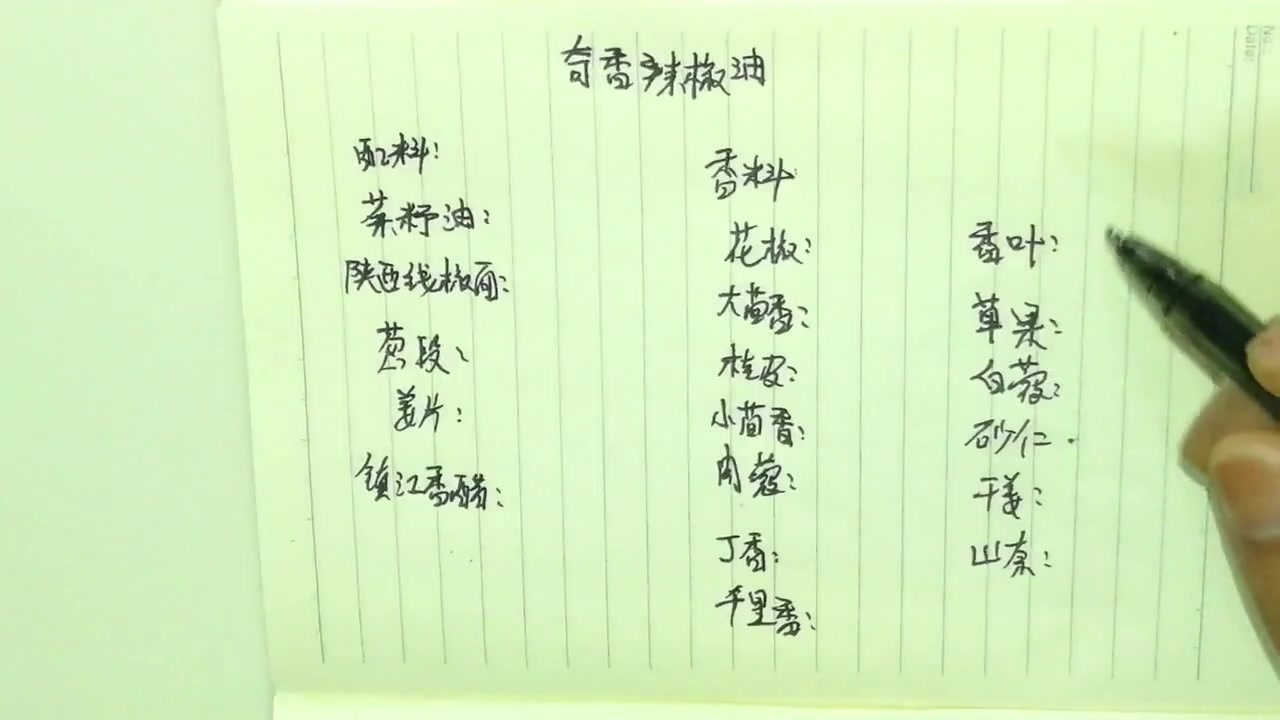 奇香辣椒油
配料:
菜籽油:
陕西线椒面:
葱段:
姜片:
镇江香醋:
香料
花椒:
大茴香:
桂皮:
小茴香:
肉蔻:
丁香:
千里香:
香叶:
草果:
白蔻:
砂仁.
干姜:
山奈:
No.
Date: